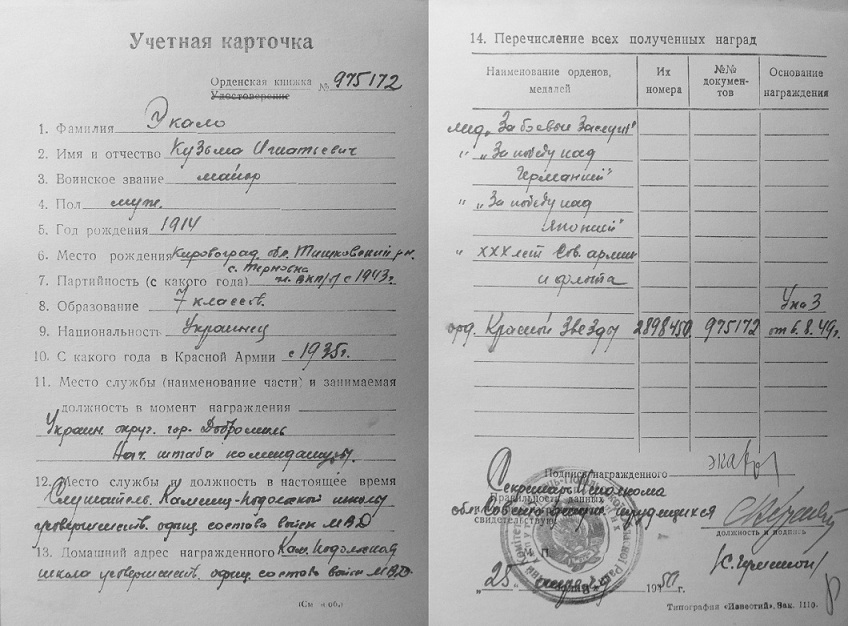 Учетная карточка
Орденская книжка
Удостоверение № 975172
1. Фамилия Укало
2. Имя и отчество Кузьма Игнатьевич
3. Воинское звание майор
4. Пол муж.
5. Год рождения 1914
6. Место рождения Кировоград. обл. Тишковский р-н.
с. Терновка
7. Партийность (с какого года) чл. ВКП/б с 1943 г.
8. Образование 7 классов.
9. Национальность Украинец
10. С какого года в Красной Армии с 1935 г.
11. Место службы (наименование части) и занимаемая
должность в момент награждения
Украин. округ. гор. Добромиль
Нач. штаба комендатуры.
12. Место службы и должность в настоящее время
Слушатель Камениц-Подольской школы
усовершенств. офиц. состава войск МВД
13. Домашний адрес награжденного Кам. Подольская
школа усовершенст. офиц. состава войск МВД.
(См на об.)
14. Перечисление всех полученных наград
Наименование орденов, медалей
Их номера
№№ документов
Основание награждения
мед. „За боевые Заслуги"
" „За победу над
Германией"
" „За победу над
Японией"
" XXX лет Сов. армии
и флота
Указ
орд. Красной Звезды 2898450 975172 от 6.8.49г.
Подпись награжденного
Секретарь Исполкома
Правильность данных
обл. Совета трудящихся
свидетельствую
должность и подпись
М. П.
„25" 1950 г.
Типография «Известий». Зак. 1110.